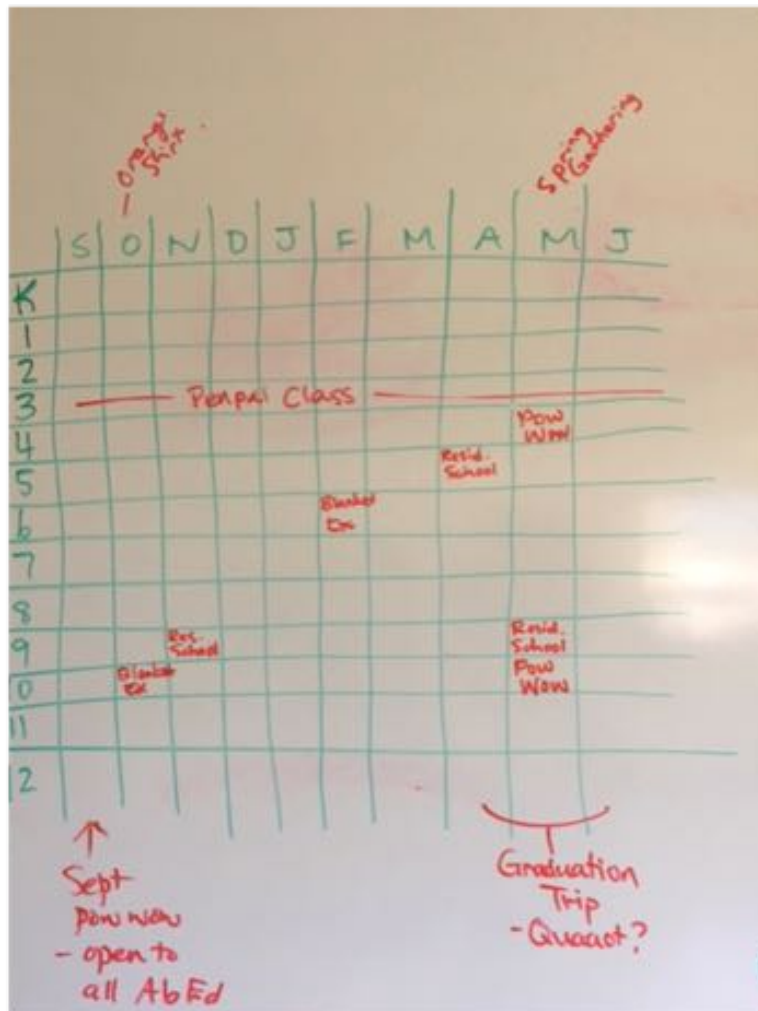 Orange
Shirt
Spring
Gathering
S O N D J F M A M J
K
1
2
3 Penpal Class
Pow
4 Wow
Resid.
5 School
Blanket
6 Ex
7
8
Res. Resid.
9 School School
Blanket Pow
10 Ex Wow
11
12
Sept
Pow wow
- open to
all AbEd
Graduation
Trip
- Quaaot?